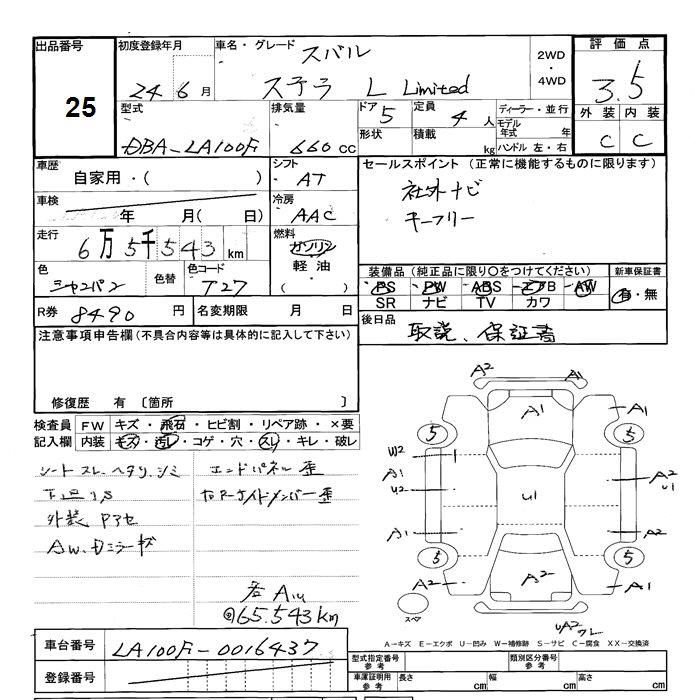 出品番号
25
初度登録年月
24 6 月
車名・グレード
スバル
ステラ L Limited
2WD
・
4WD
評価点
3.5
外装 内装
C C
型式
DBA-LA100F
排気量
660 cc
ドア 5
定員 4 人
形状
積載 kg
ディーラー・並行
モデル年式 年
ハンドル 左・右
車歴
自家用・( )
シフト
AT
車検
年 月( 日)
冷房
AAC
走行
6万5千543 km
燃料
ガソリン
軽油・
( )
色
シャンパン
色替
色コード
T27
R券 8490 円
名変期限 月 日
セールスポイント(正常に機能するものに限ります)
社外ナビ
キーフリー
装備品(純正品に限り○をつけてください)
PS PW ABS エアB AW
SR ナビ TV カワ
新車保証書
有・無
後日品
取説、保証書
注意事項申告欄(不具合内容等は具体的に記入して下さい)
修復歴 有 〔箇所 〕
検査員
記入欄
FW キズ・飛石・ヒビ割・リペア跡・×要
内装 キズ・汚レ・コゲ・穴・スレ・キレ・破レ
シートスレ、ヘタリ、シミ
下回りS
外装 Pアセ
AW、Dミラーキズ
エンドパネル歪
右Rサイドメンバー歪
各A,U
@65.543km
A2 A1
A1 A1
5 5
W2
A1
U2
U1
A2
U1
A1
A2
5 5
A2 A2 A1
スペア
UA2
ワレ
A-キズ E-エクボ U-凹み W-補修跡 S-サビ C-腐食 XX-交換済
車台番号
LA100F-0016437
登録番号
型式指定番号
参考
類別区分番号
参考
車庫証明用
参考
長さ cm
幅 cm
高さ cm